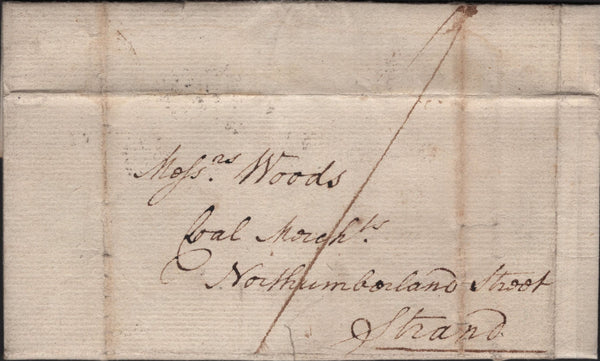 Messrs. Woods
Coal Merchts.
Northumberland Street
Strand